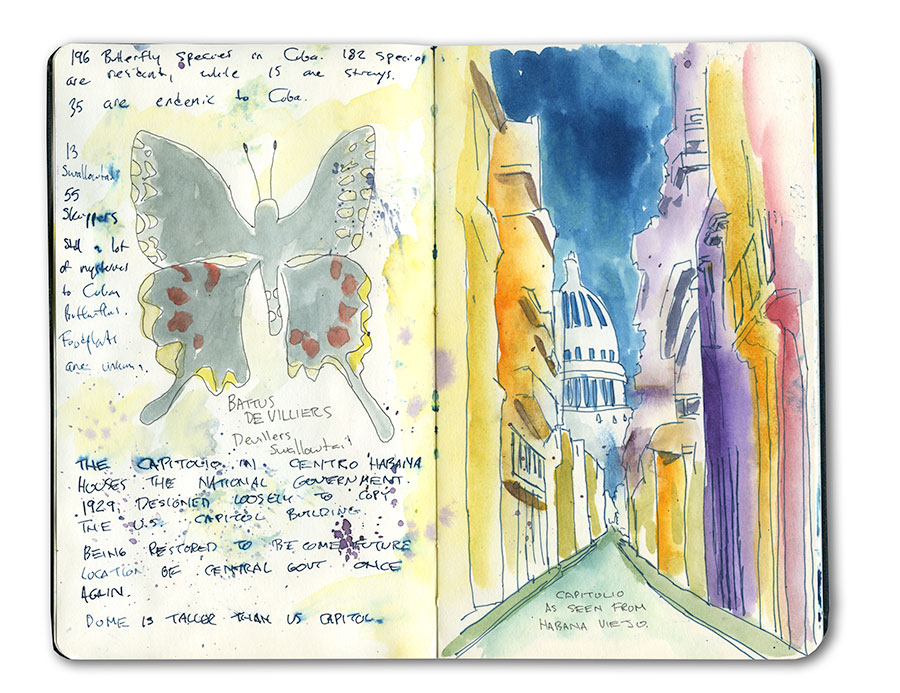 196 Butterfly species in Cuba. 182 species
are resident, while 15 are strays.
35 are endemic to Cuba.
13
Swallowtails
55
Skippers
Still a lot
of mysteries
to Cuban
Butterflies.
Foodplants
are unknown.
BATTUS
DE VILLIERS
Devillers
Swallowtail
THE CAPITOLIO IN CENTRO HABANA
HOUSES THE NATIONAL GOVERNMENT.
1929. DESIGNED LOOSELY TO COPY
THE U.S. CAPITOL BUILDING.
BEING RESTORED TO BECOME FUTURE
LOCATION OF CENTRAL GOVT ONCE
AGAIN.
DOME IS TALLER THAN US CAPITOL.
CAPITOLIO
AS SEEN FROM
HABANA VIEJO.